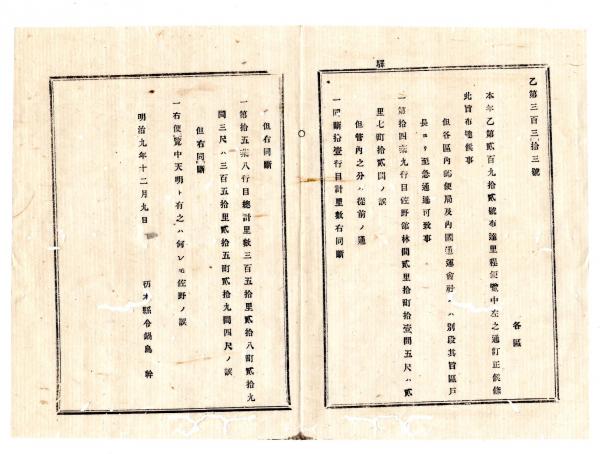 驛
乙第三百三拾三號
各區
本年乙第貳百九拾貳號布達里程便覽中左之通訂正候條
此旨布達候事
但各區內郵便局及內國通運會社ヘハ別段其旨區戶
長ヨリ至急通達可致事
一第拾四葉九行目佐野館林間貳里拾町拾壹間五尺ハ貳
里七町拾貳間ノ誤
但管內之分ハ從前ノ通
一同斷拾壹行目計里數右同斷
但右同斷
一第拾五葉八行目總計里數三百五拾里貳拾八町貳拾九
間三尺ハ三百五拾里貳拾五町貳拾九間四尺ノ誤
但右同斷
一右便覽中天明ト有之ハ何レモ佐野ノ誤
明治九年十二月九日
栃木縣令鍋島 幹